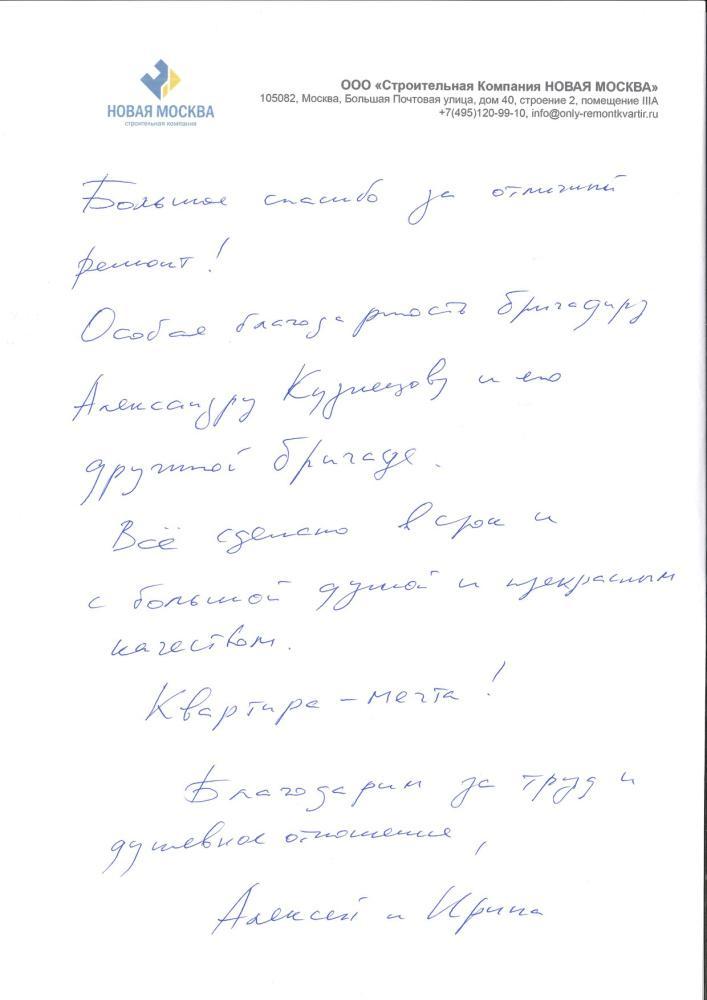 НОВАЯ МОСКВА
строительная компания
ООО «Строительная Компания НОВАЯ МОСКВА»
105082, Москва, Большая Почтовая улица, дом 40, строение 2, помещение IIIА
+7(495)120-99-10, info@only-remontkvartir.ru
Большое спасибо за отличный
ремонт!
Особая благодарность бригадиру
Александру Кузнецову и его
дружной бригаде.
Всё сделано в срок и
с большой душой и прекрасным
качеством.
Квартира – мечта!
Благодарим за труд и
душевное отношение,
Алексей и Ирина